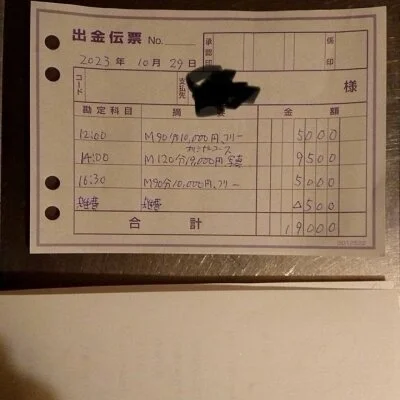 出金伝票 No.
承認印 係印
2023年 10月 29日
コード 支払先 様
勘定科目 摘要 金額
12:00 M90分10,000円、フリー 5000
14:00 M120分19,000円、写真 9500
16:30 M90分10,000円、フリー 5000
雑費 雑費 △500
合計 19000